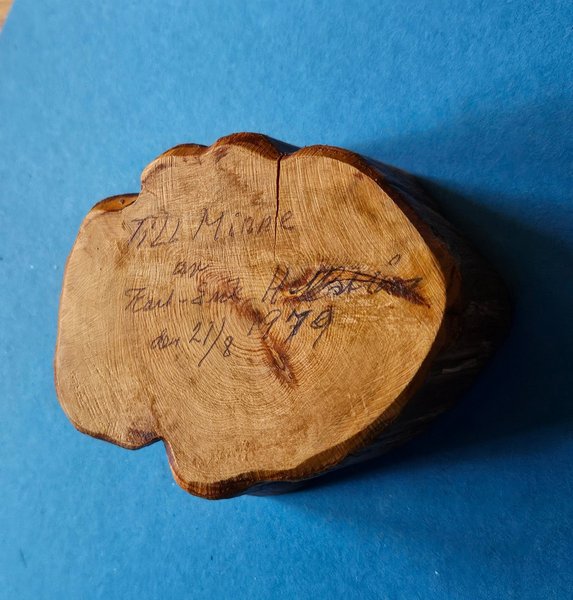 Till Minne
av
Karl-Erik
den 21/8 1979